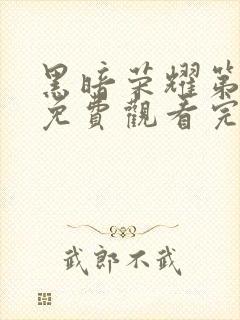 黑暗荣耀第
免費觀看完
武郎不武